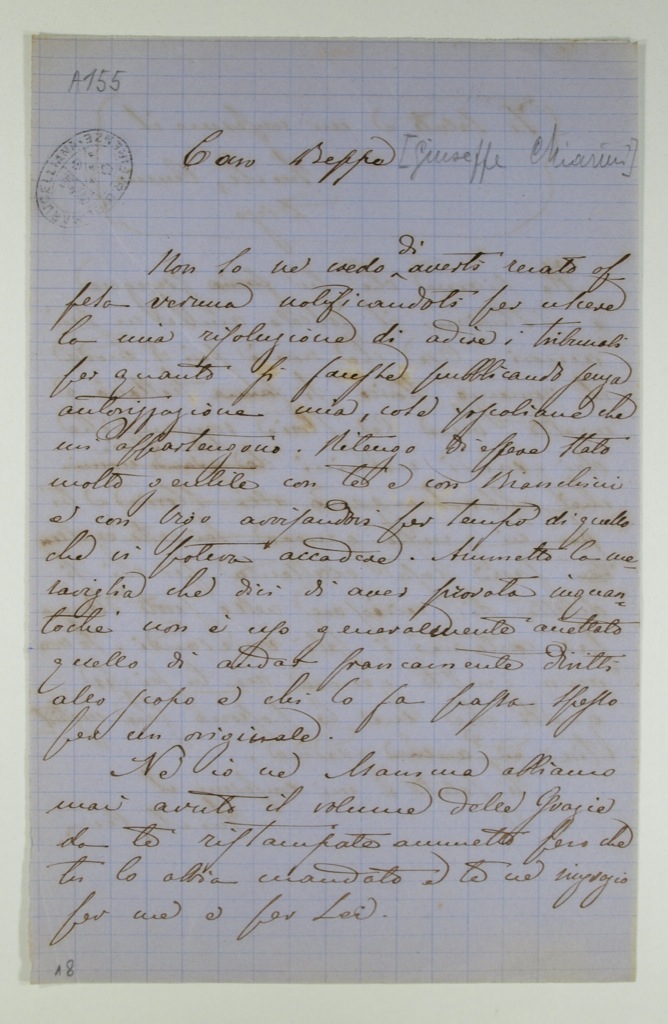 A155
MARUCELLIANA
FIRENZE
Caro Beppe [Giuseppe Chiarini]
Non so nè credo di averti recato of
fesa veruna notificandoti per usciere
la mia risoluzione di adire i tribunali
per quanto si fausse pubblicando senza
autorizzazione mia, cose foscoliane che
mi appartengono. Ritengo di essere stato
molto gentile con te e con Bianchini
e con Vigo avvisandovi per tempo di quello
che vi poteva accadere. Ammetto la me-
raviglia che dici di aver provata inquan-
tochè non è uso generalmente accettato
quello di andar francamente diritti
allo scopo e chi lo fa passa spesso
per un originale.
Nè io nè Mamma abbiamo
mai avuto il volume delle Grazie
da te ristampate ammetto però che
tu lo abbia mandato e te ne ringrazio
per me e per Lei.
18